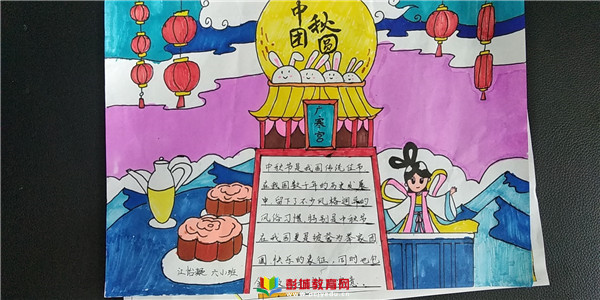 中秋
团圆
广寒宫
中秋节是我国传统佳节
在我国数千年的历史发展
中留下了不少风格迥异的
风俗习惯,特别是中秋节
在我国更是被誉为举家团
圆快乐的象征,同时也包
江怡 六小班
彭城教育网